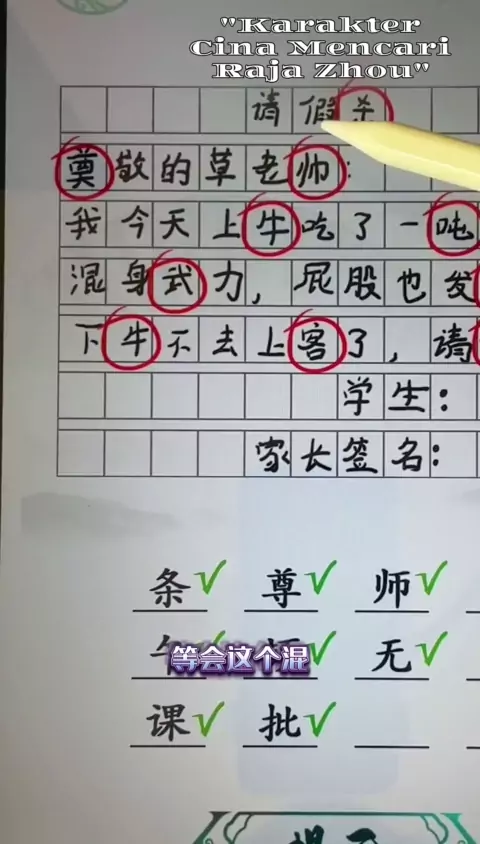 "Karakter
Cina Mencari
Raja Zhou"
请假
奠敬的草老帅：
我今天上牛吃了一吨
混身武力，屁股也发
下牛不去上客了，请
学生：
家长签名：
条 尊 师
无
等会这个混
课 批